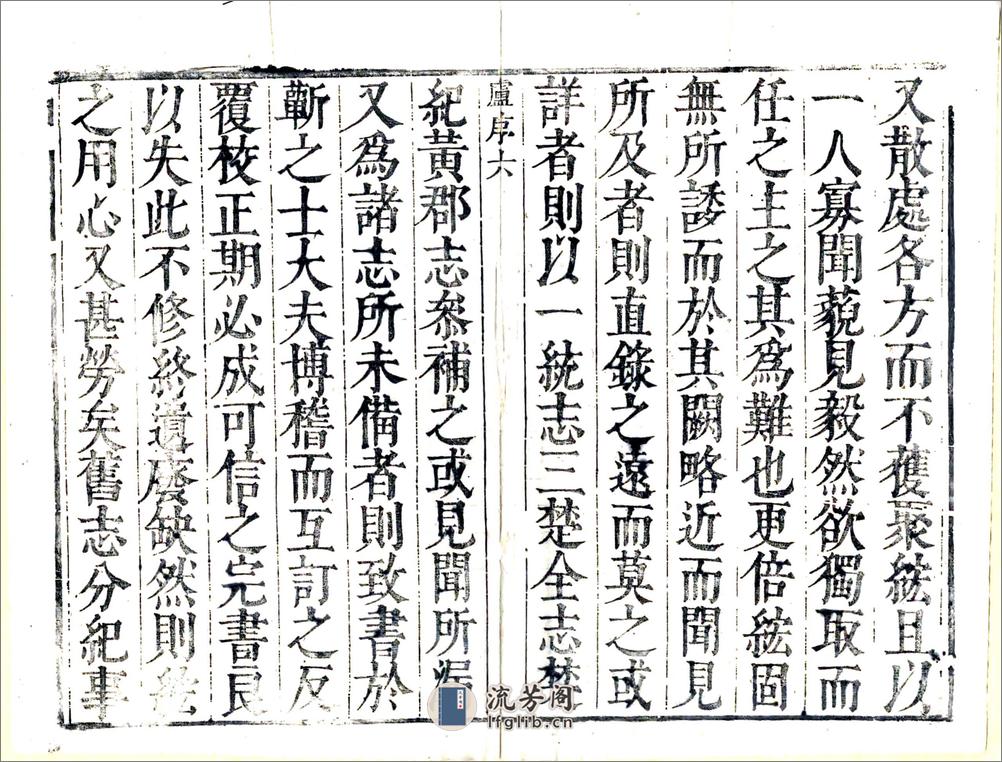 又散處各方而不獲聚紘且以
一人寡聞藐見毅然欲獨取而
任之主之其爲難也更倍紘固
無所諉而於其闕略近而聞見
所及者則直錄之遠而莫之或
詳者則以一統志三楚全志楚
盧序六
紀黃郡志叅補之或見聞所漏
又爲諸志所未備者則致書於
蘄之士大夫博稽而互訂之反
覆校正期必成可信之完書良
以失此不修終遺廢缺然則紘
之用心又甚勞矣舊志分紀事
流芳阁
lfglib.cn